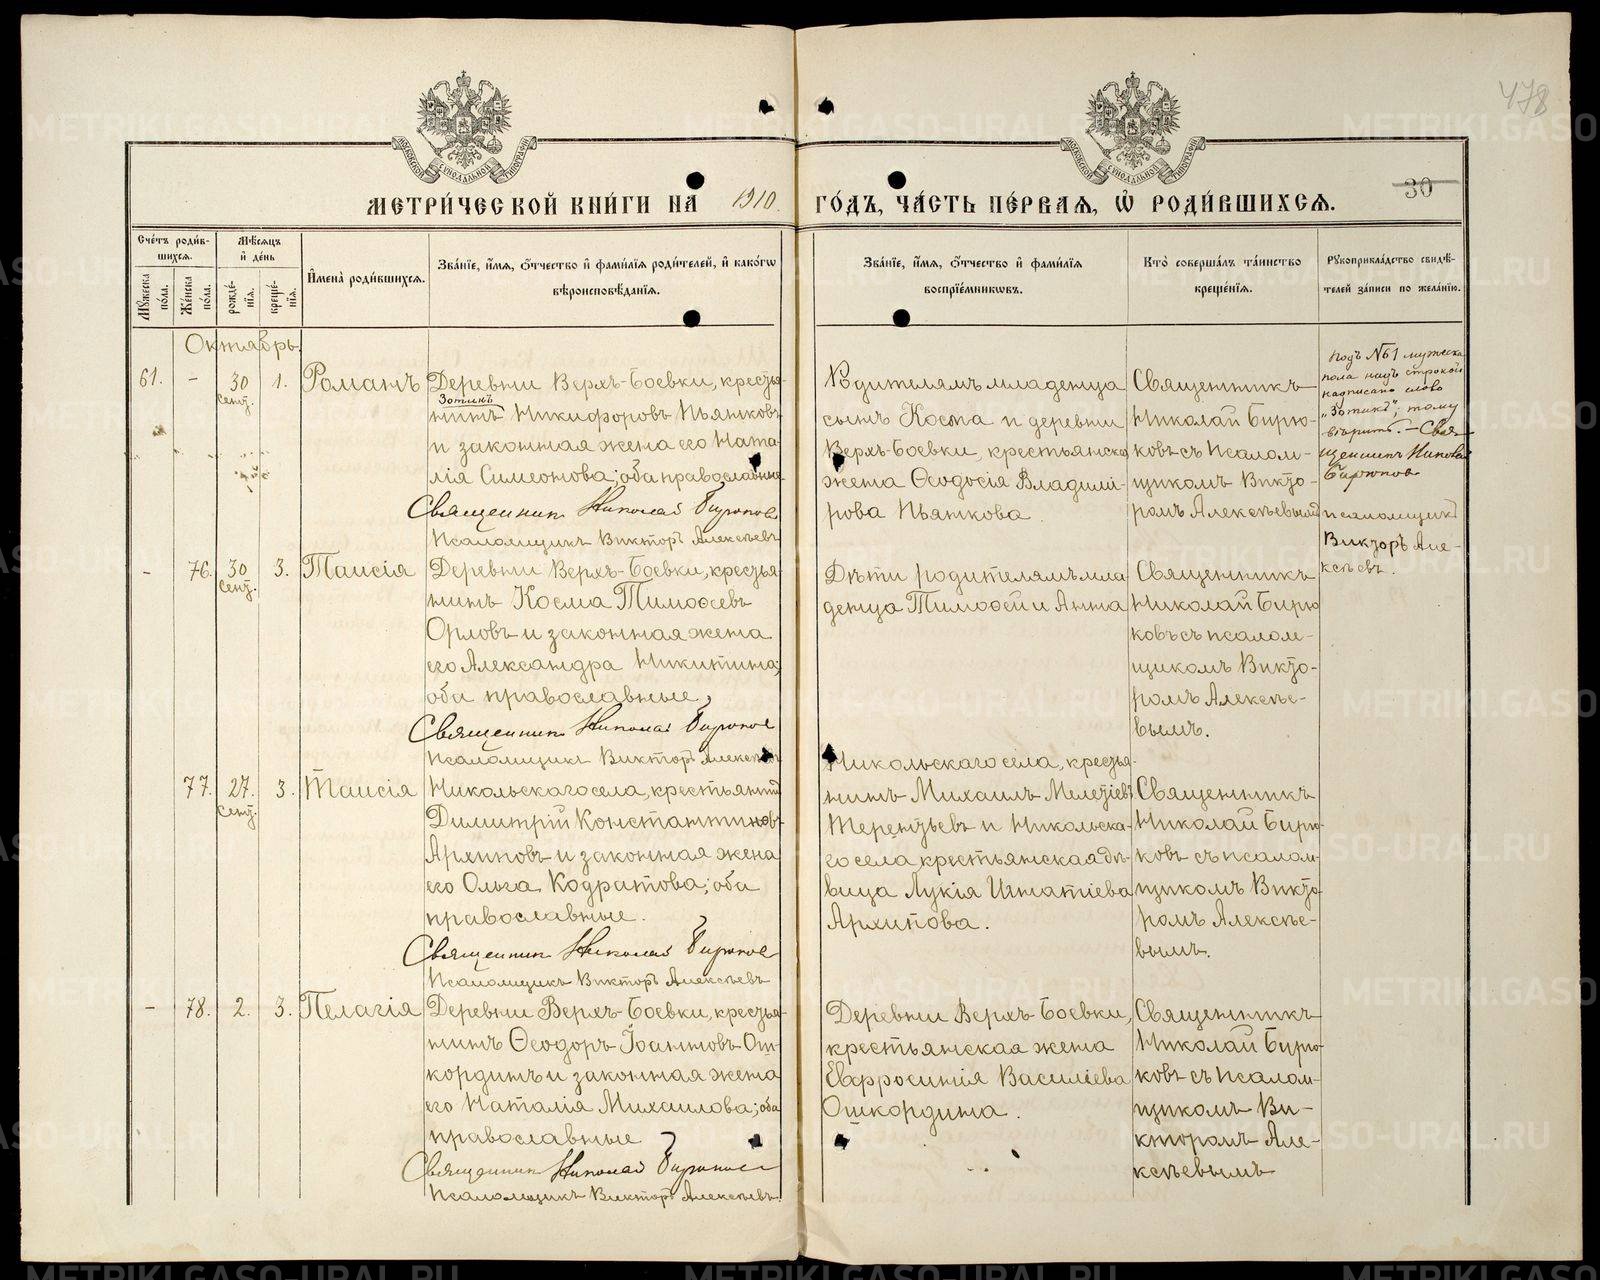 478
30
МЕТРИ́ЧЕСКОЙ КНИ́ГИ НА 1910. ГО́ДЪ, ЧА́СТЬ ПЕ́РВАѦ, Ѡ҆ РОДИ́ВШИХСѦ.
Сче́тъ роди́в-
шихсѧ.
Мꙋ́жеска по́ла.
Же́нска по́ла.
Мѣ́сѧцъ
и҆ де́нь
рожде́-
нїѧ.
креще́-
нїѧ.
И҆мена̀ роди́вшихсѧ.
Зва́нїе, и҆́мѧ, ѻ҆́тчество и҆ фами́лїѧ роди́телей, и҆ како́гѡ
вѣроисповѣ́данїѧ.
Зва́нїе, и҆́мѧ, ѻ҆́тчество и҆ фами́лїѧ
воспрїе́мникѡвъ.
Кто̀ соверша́лъ та́инство
креще́нїѧ.
Рꙋкоприкла́дство свидѣ́-
телей за́писи по жела́нїю.
Октябрь.
61.
-
30
Сент.
1.
Романъ
Деревни Верхъ-Боевки, крестья-
Зотикъ
нинъ Никифоровъ Пьянковъ
и законная жена его Ната-
лія Симеонова; оба православные
Священникъ Николай Бирюковъ
Псаломщикъ Викторъ Алексѣевъ
Родителямъ младенца
сынъ Косма и деревни
Верхъ-Боевки, крестьянска
жена Ѳеодосія Владимі-
рова Пьянкова.
Священникъ
Николай Бирю-
ковъ съ псалом-
щикомъ Викто-
ромъ Алексѣевымъ
Подъ №61 мужеска
пола надъ строкой
надписано слово
„Зотикъ“; тому
вѣрить. - Свя-
щенникъ Николай
Бирюковъ
псаломщикъ
Викторъ Але-
ксѣевъ.
-
76.
30
Сент.
3.
Таисія
Деревни Верхъ-Боевки, крестья-
нинъ Косма Тимоѳеевъ
Орловъ и законная жена
его Александра Никитина;
оба православные,
Священникъ Николай Бирюковъ
Псаломщикъ Викторъ Алексѣевъ
Дѣти родителямъ мла-
денца Тимоѳей и Анна
Священникъ
Николай Бирю
ковъ съ псалом-
щикомъ Викто-
ромъ Алексѣе-
вымъ.
77.
27.
Сент.
3.
Таисія
Никольскаго села, крестьянинъ
Димитрій Константиновъ
Архиповъ и законная жена
его Ольга Кодратова; оба
православные.
Священникъ Николай Бирюковъ
Псаломщикъ Викторъ Алексѣевъ
Никольскаго села, крестья-
нинъ Михаилъ Мелетіевъ
Терентьевъ и Никольска-
го села крестьянская дѣ-
вица Лукія Игнатіева
Архипова.
Священникъ
Николай Бирю-
ковъ съ псалом-
щикомъ Викто
ромъ Алексѣе-
вымъ.
-
78.
2.
3.
Пелагія
Деревни Верхъ-Боевки, крестья-
нинъ Ѳеодоръ Іоанновъ Ош-
кординъ и законная жена
его Наталія Михаилова; оба
православные
Священникъ Николай Бирюковъ
Псаломщикъ Викторъ Алексѣевъ.
Деревни Верхъ-Боевки,
крестьянская жена
Евфросинія Василіева
Ошкордина.
Священникъ
Николай Бирю-
ковъ съ псалом-
щикомъ Ви-
кторомъ Але-
ксѣевымъ
METRIKI.GASO-URAL.RU